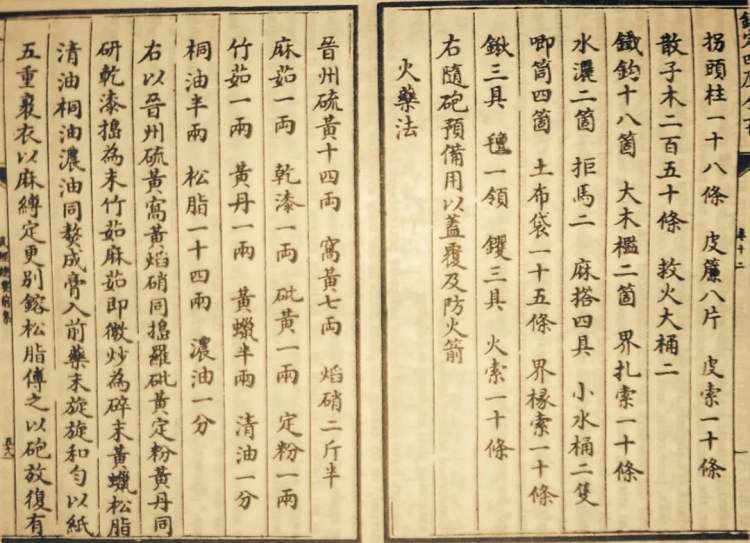 拐頭柱一十八條 皮簾八片 皮索一十條
散子木二百五十條 救火大桶二
鐵鈎十八箇 大木檻二箇 界扎索一十條
水灑二箇 拒馬二 麻搭四具 小水桶二隻
唧筒四箇 土布袋一十五條 界椽索一十條
鍬三具 氊一領 钁三具 火索一十條
右隨砲預備用以蓋覆及防火箭
火藥法
卷十二
晉州硫黃十四兩 窩黃七兩 焰硝二斤半
麻茹一兩 乾漆一兩 砒黃一兩 定粉一兩
竹茹一兩 黃丹一兩 黃蠟半兩 清油一分
桐油半兩 松脂一十四兩 濃油一分
右以晉州硫黃窩黃焰硝同搗羅砒黃定粉黃丹同
研乾漆搗為末竹茹麻茹即微炒為碎末黃蠟松脂
清油桐油濃油同熬成膏入前藥末旋旋和勻以紙
五重裹衣以麻縛定更別鎔松脂傅之以砲放復有